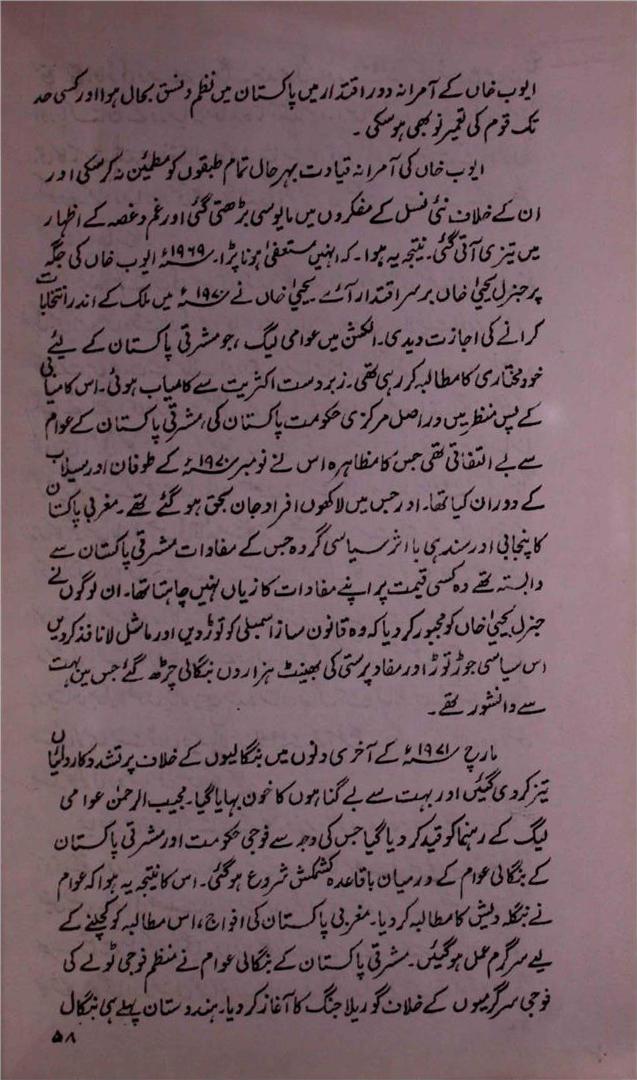 ایوب خاں کے آمرانہ دور اقتدار میں پاکستان میں نظم و نسق بحال ہوا اور کسی حد
تک قوم کی تعمیر نو بھی ہو سکی ۔
ایوب خاں کی آمرانہ قیادت بہر حال تمام طبقوں کو مطمئین نہ کر سکی اور
ان کے خلاف نئی نسل کے مفکروں میں مایوسی بڑھتی گئی اور غم و غصہ کے اظہار
میں تیزی آتی گئی۔ نتیجہ یہ ہوا۔ کہ انہیں مستعفی ہونا پڑا۔ ۱۹۶۹ء ایوب خاں کی جگہ
پر جنرل یحییٰ خاں برسر اقتدار آئے یحییٰ خاں نے ۱۹۷۰ء میں ملک کے اندر انتخابات
کرانے کی اجازت دیدی۔ الکشن میں عوامی لیگ، جو مشرقی پاکستان کے لیے
خود مختاری کا مطالبہ کر رہی تھی۔ زبردست اکثریت سے کامیاب ہوئی۔ اس کامیابی
کے پس منظر میں در اصل مرکزی حکومت پاکستان کی، مشرقی پاکستان کے عوام
سے بے التفاتی تھی جس کا مظاہرہ اس نے نومبر ۱۹۷۰ء کے طوفان اور سیلاب
کے دوران کیا تھا۔ اور جس میں لاکھوں افراد جان بحق ہو گئے تھے۔ مغربی پاکستان
کا پنجابی اور سندہی با اثر سیاسی گروہ جس کے مفادات مشرقی پاکستان سے
وابستہ تھے وہ کسی قیمت پر اپنے مفادات کا زیاں نہیں چاہتا تھا۔ ان لوگوں نے
جنرل یحییٰ خاں کو مجبور کر دیا کہ وہ قانون ساز اسمبلی کو توڑ دیں اور مارشل لا نافذ کر دیں
اس سیاسی جوڑ توڑ اور مفاد پرستی کی بھینٹ ہزاروں بنگالی چڑھ گئے جس میں بہت
سے دانشور تھے۔
مارچ ۱۹۷۱ء کے آخری دنوں میں بنگالیوں کے خلاف پر تشدد کاروائیاں
تیز کر دی گئیں اور بہت سے بے گناہوں کا خون بہایا گیا۔ مجیب الرحمٰن عوامی
لیگ کے رہنما کو قید کر دیا گیا جس کی وجہ سے فوجی حکومت اور مشرقی پاکستان
کے بنگالی عوام کے درمیان باقاعدہ کشمکش شروع ہو گئی۔ اس کا نتیجہ یہ ہوا کہ عوام
نے بنگلہ دیش کا مطالبہ کر دیا۔ مغربی پاکستان کی افواج، اس مطالبہ کو کچلنے کے
لیے سرگرم عمل ہو گئیں۔ مشرقی پاکستان کے بنگالی عوام نے منظم فوجی ٹولے کی
فوجی سرگرمیوں کے خلاف گوریلا جنگ کا آغاز کر دیا۔ ہندوستان پہلے ہی بنگال
۵۸